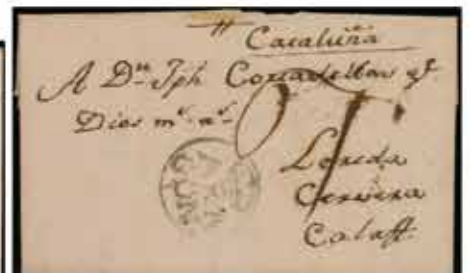 Cataluña
A Dⁿ Jph Cortadellas qᵉ
Dios mˢ aˢ
Lereda
Cervera
Calaff.